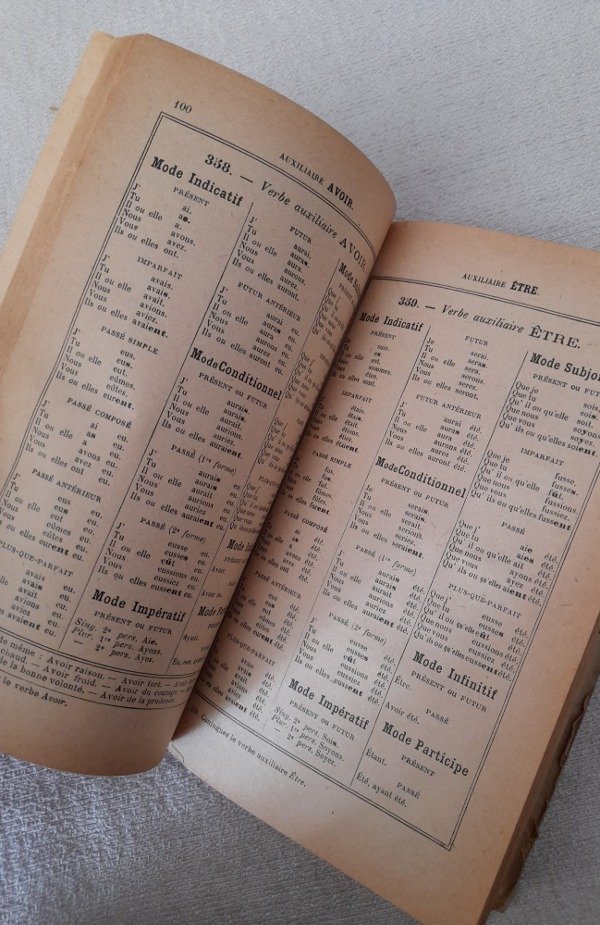 100
AUXILIAIRE AVOIR.
358. — Verbe auxiliaire AVOIR
Mode Indicatif
PRÉSENT
J' ai.
Tu as.
Il ou elle a.
Nous avons.
Vous avez.
Ils ou elles ont.
IMPARFAIT
J' avais.
Tu avais.
Il ou elle avait.
Nous avions.
Vous aviez.
Ils ou elles avaient.
PASSÉ SIMPLE
J' eus.
Tu eus.
Il ou elle eut.
Nous eûmes.
Vous eûtes.
Ils ou elles eurent.
PASSÉ COMPOSÉ
J' ai eu.
Tu as eu.
Il ou elle a eu.
Nous avons eu.
Vous avez eu.
Ils ou elles ont eu.
PASSÉ ANTÉRIEUR
J' eus eu.
Tu eus eu.
Il ou elle eut eu.
Nous eûmes eu.
Vous eûtes eu.
Ils ou elles eurent eu.
PLUS-QUE-PARFAIT
avais eu.
avais eu.
elle avait eu.
avions eu.
aviez eu.
elles avaient eu.
FUTUR
J' aurai.
Tu auras.
Il ou elle aura.
Nous aurons.
Vous aurez.
Ils ou elles auront.
FUTUR ANTÉRIEUR
J' aurai eu.
Tu auras eu.
Il ou elle aura eu.
Nous aurons eu.
Vous aurez eu.
Ils ou elles auront eu.
Mode Conditionnel
PRÉSENT OU FUTUR
J' aurais.
Tu aurais.
Il ou elle aurait.
Nous aurions.
Vous auriez.
Ils ou elles auraient.
PASSÉ (1re forme)
J' aurais eu.
Tu aurais eu.
Il ou elle aurait eu.
Nous aurions eu.
Vous auriez eu.
Ils ou elles auraient eu.
PASSÉ (2e forme)
J' eusse eu.
Tu eusses eu.
Il ou elle eût eu.
Nous eussions eu.
Vous eussiez eu.
Ils ou elles eussent eu.
Mode Impératif
PRÉSENT OU FUTUR
Sing. 2e pers. Aie.
Plur. 1re pers. Ayons.
— 2e pers. Ayez.
de même : Avoir raison. — Avoir tort. — Avoir
chaud. — Avoir froid. — Avoir du courage.
de la bonne volonté. — Avoir de la prudence.
le verbe Avoir.
AUXILIAIRE ÊTRE.
359. — Verbe auxiliaire ÊTRE.
Mode Indicatif
PRÉSENT
suis.
es.
elle est.
sommes.
êtes.
elles sont.
IMPARFAIT
étais.
étais.
elle était.
étions.
étiez.
elles étaient.
PASSÉ SIMPLE
fus.
fus.
elle fut.
fûmes.
fûtes.
elles furent.
PASSÉ COMPOSÉ
ai été.
as été.
elle a été.
avons été.
avez été.
elles ont été.
PASSÉ ANTÉRIEUR
eus été.
eus été.
elle eut été.
eûmes été.
eûtes été.
elles eurent été.
PLUS-QUE-PARFAIT
avais été.
avais été.
elle avait été.
avions été.
aviez été.
elles avaient été.
FUTUR
Je serai.
Tu seras.
Il ou elle sera.
Nous serons.
Vous serez.
Ils ou elles seront.
FUTUR ANTÉRIEUR
J' aurai été.
Tu auras été.
Il ou elle aura été.
Nous aurons été.
Vous aurez été.
Ils ou elles auront été.
Mode Conditionnel
PRÉSENT OU FUTUR
Je serais.
Tu serais.
Il ou elle serait.
Nous serions.
Vous seriez.
Ils ou elles seraient.
PASSÉ (1re forme)
J' aurais été.
Tu aurais été.
Il ou elle aurait été.
Nous aurions été.
Vous auriez été.
Ils ou elles auraient été.
PASSÉ (2e forme)
J' eusse été.
Tu eusses été.
Il ou elle eût été.
Nous eussions été.
Vous eussiez été.
Ils ou elles eussent été.
Mode Impératif
PRÉSENT OU FUTUR
Sing. 2e pers. Sois.
Plur. 1re pers. Soyons.
— 2e pers. Soyez.
Mode Subjon
PRÉSENT OU FUTU
Que je sois.
Que tu sois.
Qu'il ou qu'elle soit.
Que nous soyons
Que vous soyez.
Qu'ils ou qu'elles soient.
IMPARFAIT
Que je fusse.
Que tu fusses.
Qu'il ou qu'elle fût.
Que nous fussions.
Que vous fussiez.
Qu'ils ou qu'elles fussent
PASSÉ
Que j' aie été.
Que tu aies été.
Qu'il ou qu'elle ait été.
Que nous ayons été.
Que vous ayez été.
Qu'ils ou qu'elles aient été.
PLUS-QUE-PARFAIT
Que j' eusse été.
Que tu eusses été.
Qu'il ou qu'elle eût été.
Que nous eussions été.
Que vous eussiez été.
Qu'ils ou qu'elles eussent été.
Mode Infinitif
PRÉSENT OU FUTUR
Être.
PASSÉ
Avoir été.
Mode Participe
PRÉSENT
Étant.
PASSÉ
Été, ayant été.
Conjuguez le verbe auxiliaire Être.